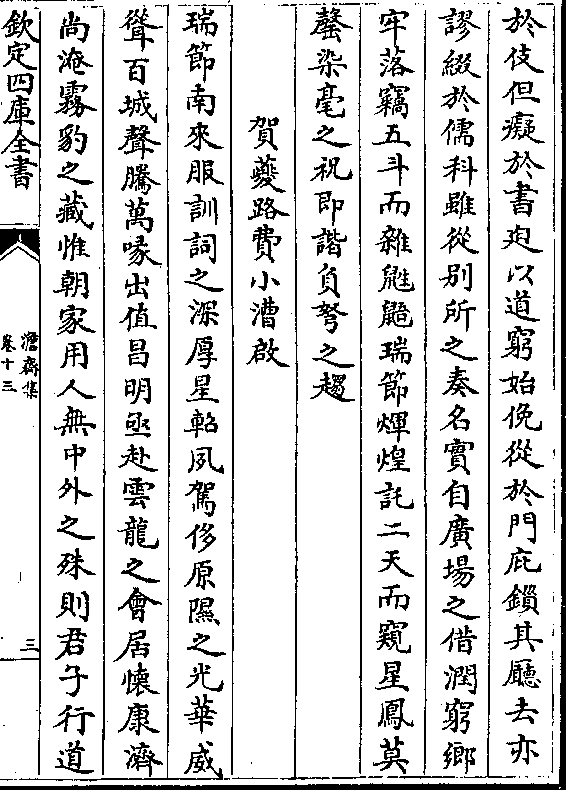 於伎但癡於書迨以道窮始俛從於門庇鎻其㕔去亦
謬綴於儒科雖從别所之奏名實自廣塲之借潤窮鄉
牢落竊五斗而雜鼪鼯瑞節煇煌託二天而窺星鳳莫
罄染毫之祝即諧負弩之趨
賀夔路費小漕啟
瑞節南來服訓詞之深厚星軺夙駕侈原隰之光華威
聳百城聲騰萬喙出值昌明亟赴雲龍之會居懷康濟
尚淹霧豹之藏惟朝家用人無中外之殊則君子行道
欽定四庫全書
澹齋集
卷十三
三